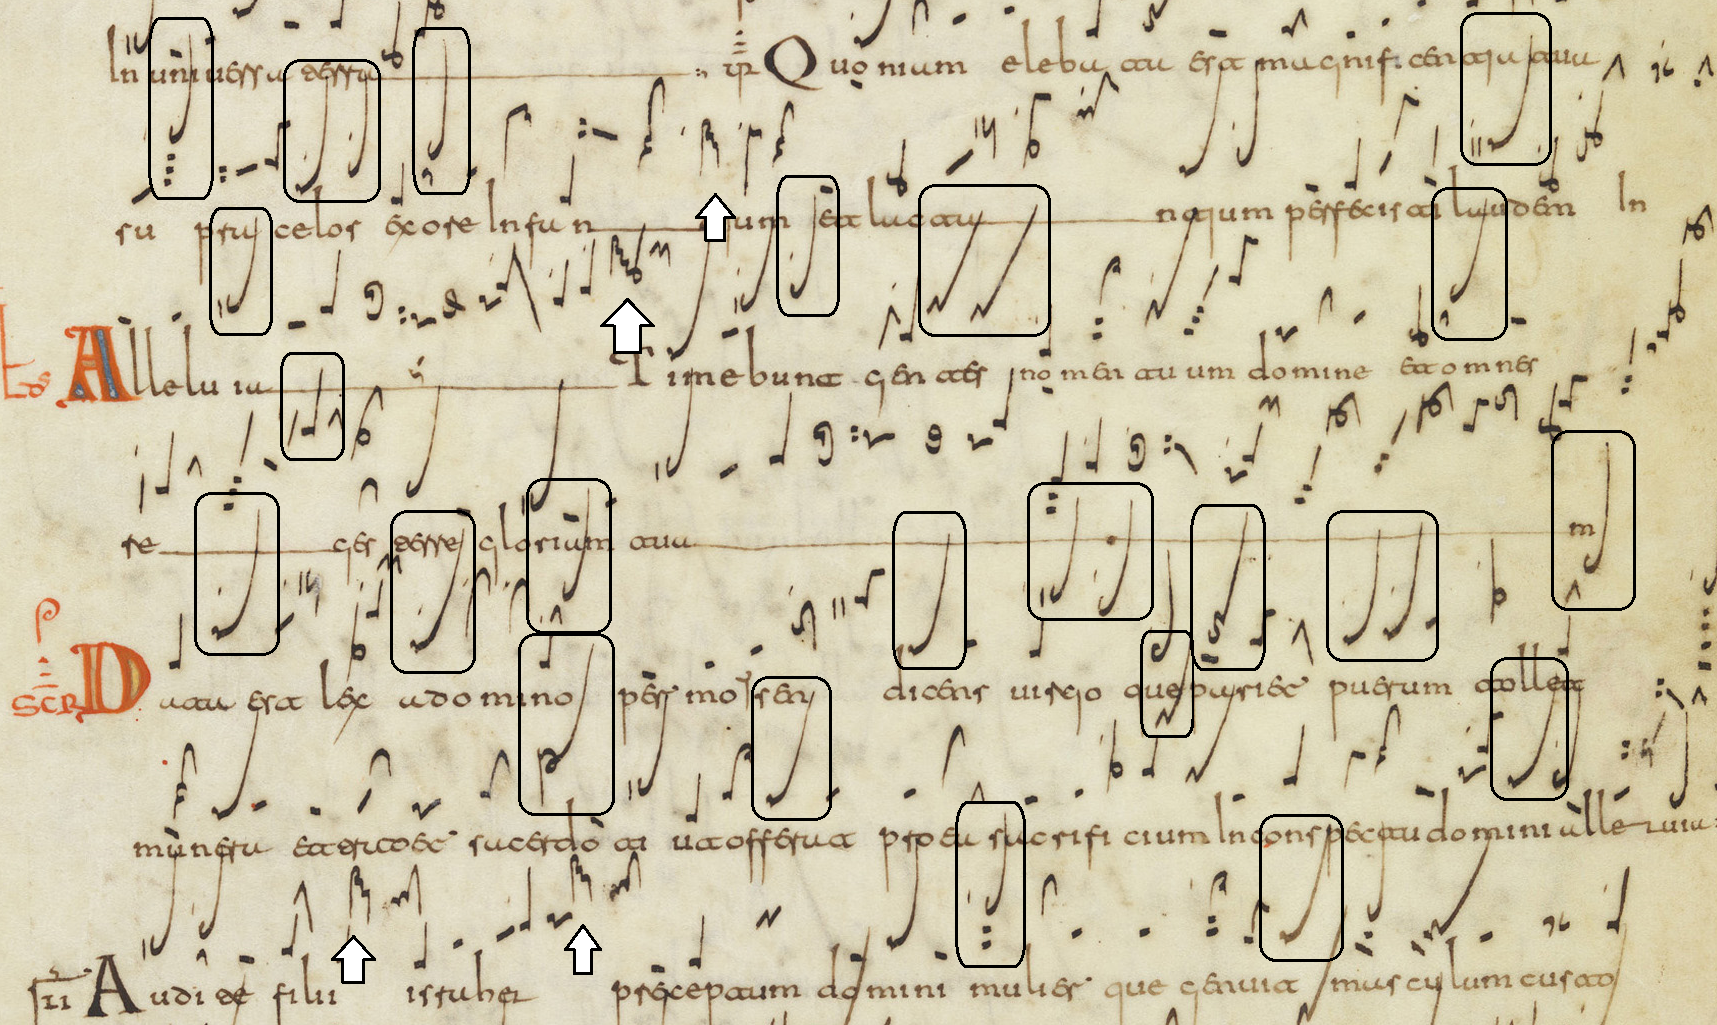 In universa terra Quoniam elebata est magnificentia tua
su pra celos ex ore Infan tium et lacta ntium perfecisti laudem In
Alleluia Timebunt gentes nomen tuum domine et omnes
re ges terre gloriam tua m
Data est lex a domino per mosen dicens virgo que pariet puerum tollet
munera et sacerdoti ut offerat pro ea sacrificium In conspectu domini alleluia
Audite filii israhel preceptum domini mulier que genuit masculum custo